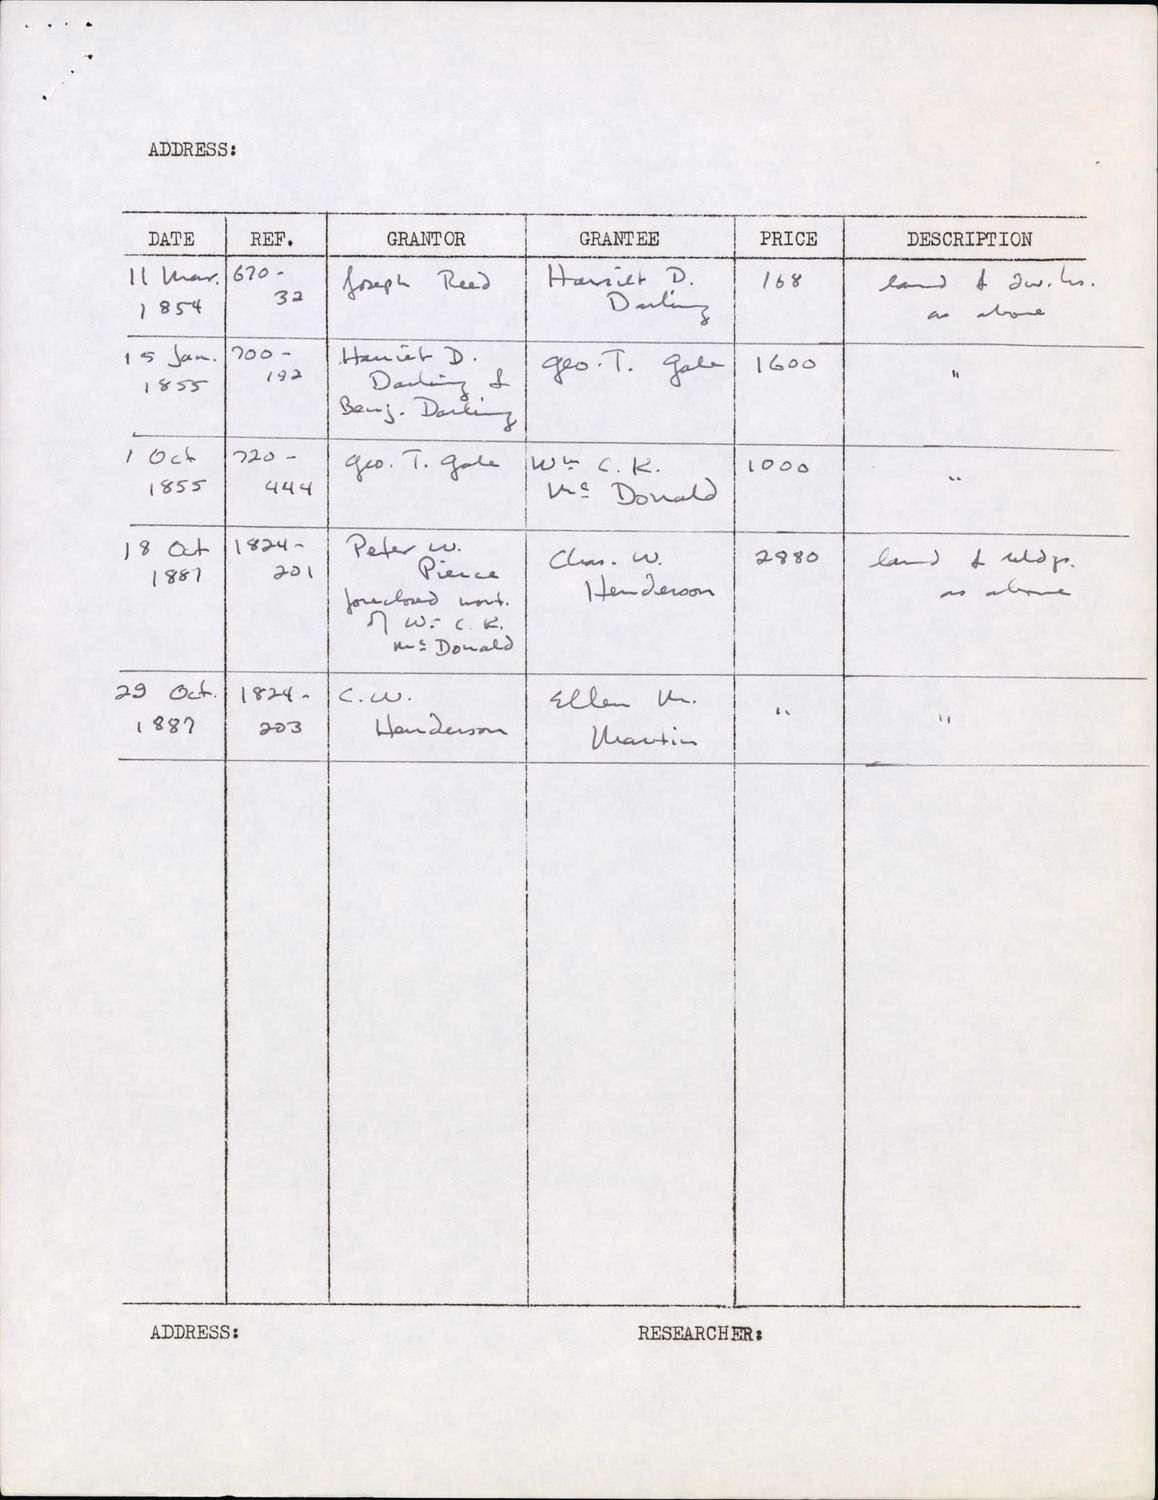 ADDRESS:
DATE REF. GRANTOR GRANTEE PRICE DESCRIPTION
11 Mar. 670- Joseph Reed Harriet D. 168 land & dw. hs.
1854 32 Darling as above
15 Jan. 700- Harriet D. Geo. T. Gale 1600 "
1855 192 Darling &
Benj. Darling
1 Oct 720- Geo. T. Gale Wm C. K. 1000 "
1855 444 Mc Donald
18 Oct 1824- Peter W. Chas. W. 2880 land & bldgs.
1887 201 Pierce Henderson as above
foreclosed mort.
of Wm C. K.
Mc Donald
29 Oct. 1824- C. W. Ellen M. " "
1887 203 Henderson Martin
ADDRESS: RESEARCHER: